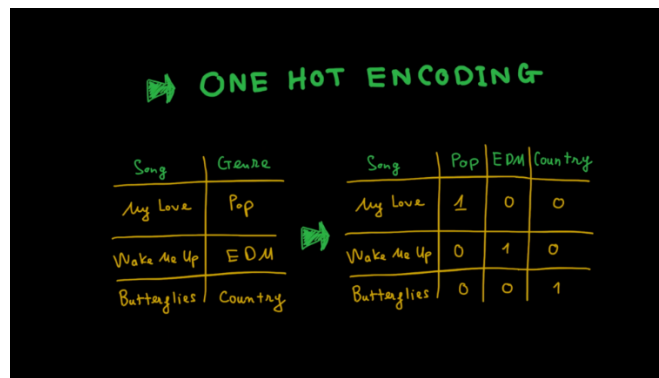 ONE HOT ENCODING
Song Genre
My Love Pop
Wake Me Up EDM
Butterflies Country
Song Pop EDM Country
My Love 1 0 0
Wake Me Up 0 1 0
Butterflies 0 0 1